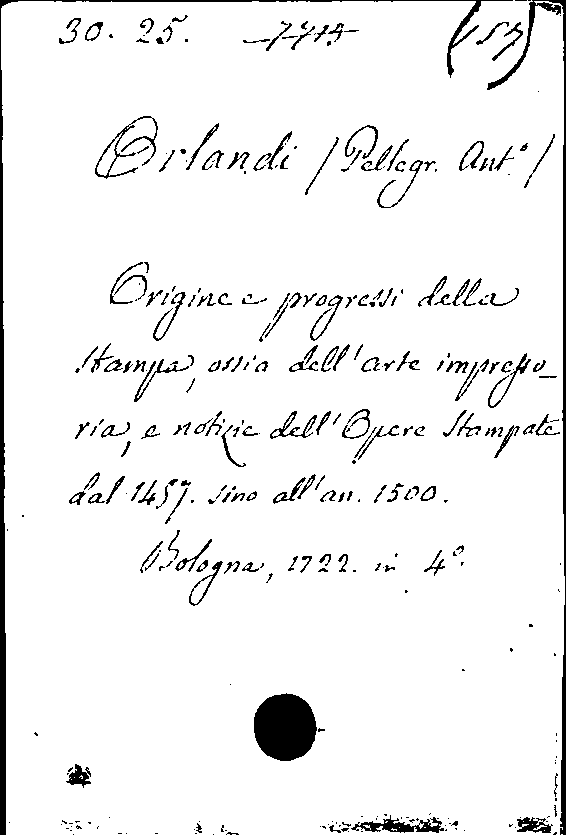 30. 25. 7715
Orlandi /Pellegr. Ant.º/
Origine e progressi della
Stampa, ossia dell'arte impresso_
ria, e notizie dell'Opere Stampate
dal 1457. sino all'an. 1500.
Bologna, 1722. in 4º.